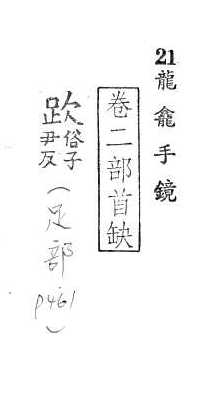 21 龍龕手鏡
卷二部首缺
俗子尹反(足部 p461)